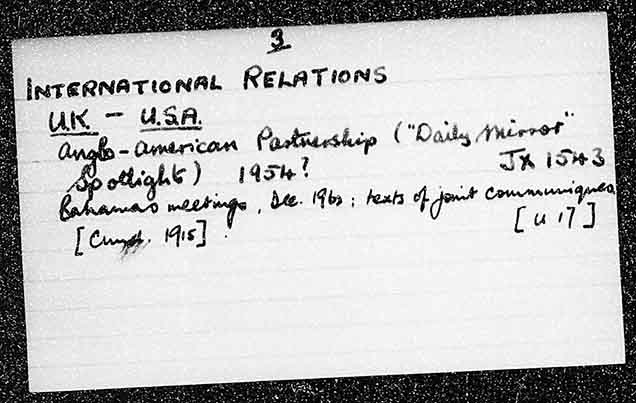 3
INTERNATIONAL RELATIONS
U.K. - U.S.A.
Anglo-American Partnership ("Daily Mirror"
Spotlight) 1954? JX 1543
Bahamas meetings, Dec. 1962 ; texts of joint communiques
[Cmnd. 1915] . [U 17]